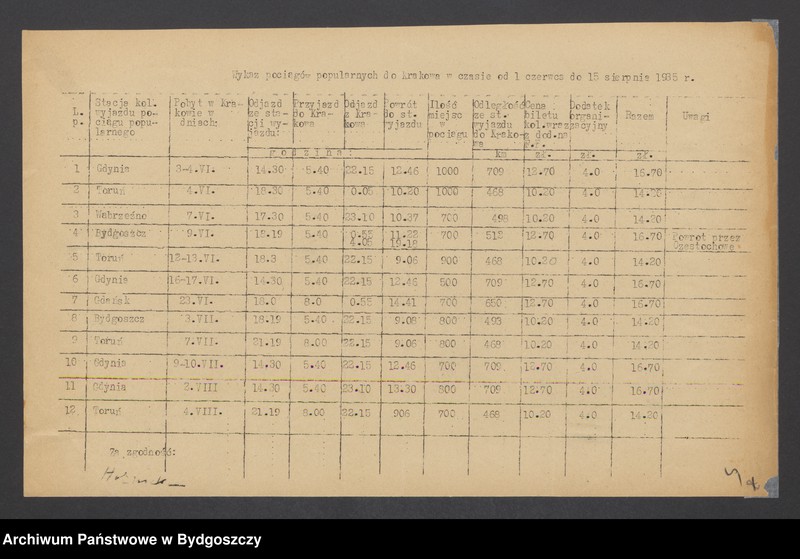 Wykaz pociągów popularnych do Krakowa w czasie od 1 czerwca do 15 sierpnia 1935 r.
L. p. | Stacja kol. wyjazdu pociągu popularnego | Pobyt w Krakowie w dniach: | Odjazd ze stacji wyjazdu: | Przyjazd do Krakowa | Odjazd z Krakowa | Powrót do st. wyjazdu | Ilość miejsc w pociągu | Odległość ze st. wyjazdu do Krakowa | Cena biletu kol. wraz z dod. na F.P. | Dodatek organizacyjny | Razem | Uwagi
G o d z i n a : | km | zł. | zł. | zł.
1 Gdynia 3-4.VI. 14.30 5.40 22.15 12.46 1000 709 12.70 4.0 16.70
2 Toruń 4.VI. 18.30 5.40 0.05 10.20 1000 468 10.20 4.0 14.20
3 Wąbrzeźno 7.VI. 17.30 5.40 23.10 10.37 700 498 10.20 4.0 14.20
4 Bydgoszcz 9.VI. 18.19 5.40 0.55 4.05 11.22 19.18 700 512 12.70 4.0 16.70 Powrót przez Częstochowę
5 Toruń 12-13.VI. 18.3 5.40 22.15 9.06 900 468 10.20 4.0 14.20
6 Gdynia 16-17.VI. 14.30 5.40 22.15 12.46 500 709 12.70 4.0 16.70
7 Gdańsk 23.VI. 18.0 8.0 0.55 14.41 700 650 12.70 4.0 16.70
8 Bydgoszcz 3.VII. 18.19 5.40 22.15 9.08 800 493 10.20 4.0 14.20
9 Toruń 7.VII. 21.19 8.00 22.15 9.06 800 468 10.20 4.0 14.20
10 Gdynia 9-10.VII. 14.30 5.40 22.15 12.46 700 709 12.70 4.0 16.70
11 Gdynia 2.VIII 14.30 5.40 23.10 13.30 800 709 12.70 4.0 16.70
12 Toruń 4.VIII. 21.19 8.00 22.15 906 700 468 10.20 4.0 14.20
Za zgodność:
Archiwum Państwowe w Bydgoszczy